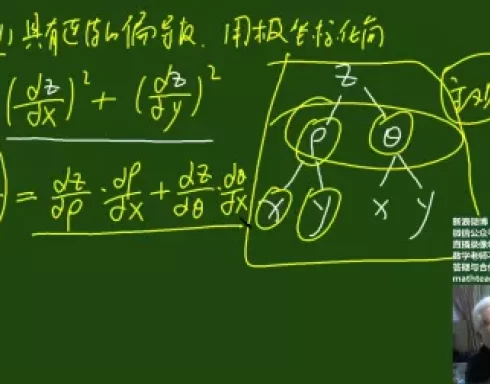 具有连续的偏导数. 用极坐标化简
(dz/dx)² + (dz/dy)²
= dz/dρ · dρ/dx + dz/dθ · dθ/dx
z
ρ θ
x y x y
新浪微博
微信公众号
直播录像
数学老师
答疑与合
mathtea